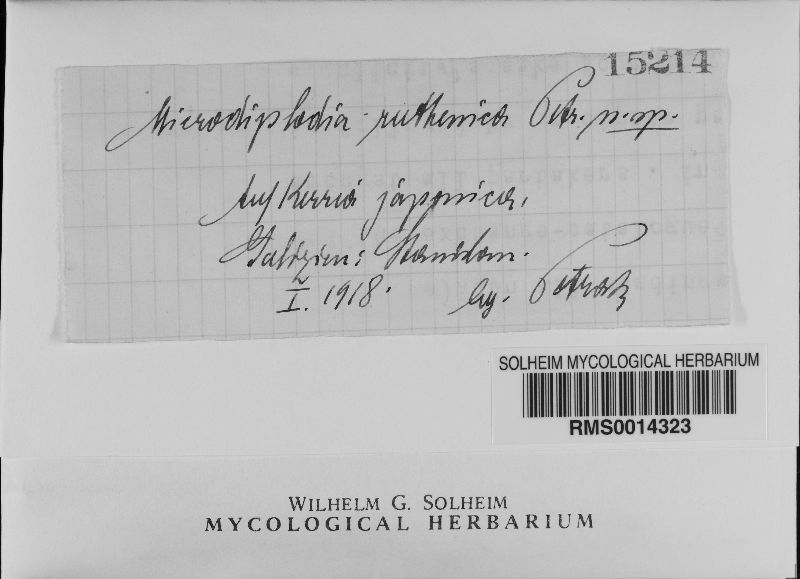 15214
Microdiplodia ruthenica Petr. n. sp.
Auf Kerria japonica,
Galizien: Stanislau.
I. 1918. leg. Petrak
SOLHEIM MYCOLOGICAL HERBARIUM
RMS0014323
WILHELM G. SOLHEIM
MYCOLOGICAL HERBARIUM